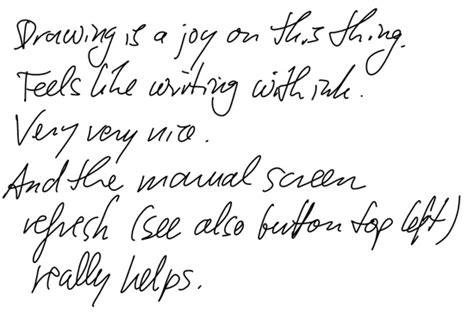 Drawing is a joy on this thing.
Feels like writing with ink.
Very very nice.
And the manual screen
refresh (see also button top left)
really helps.